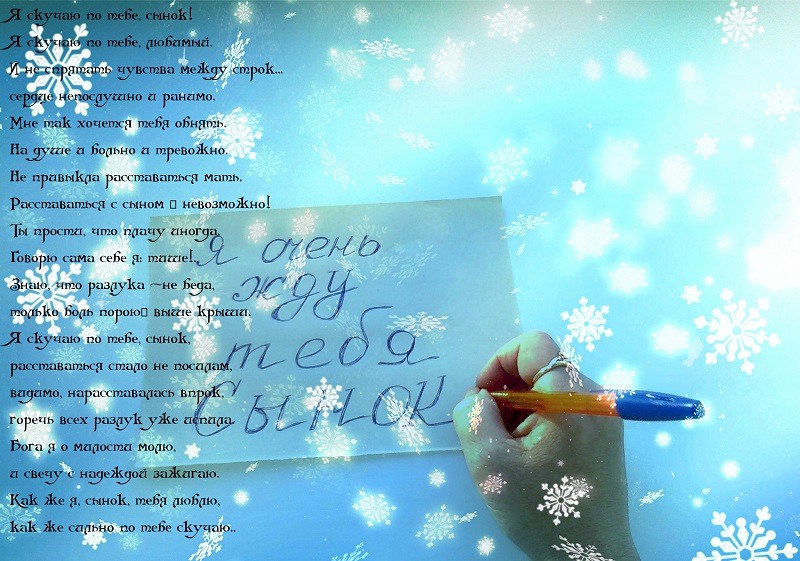 Я скучаю по тебе, сынок!
Я скучаю по тебе, любимый.
И не спрятать чувства между строк...
сердце непослушно и ранимо.
Мне так хочется тебя обнять.
На душе и больно и тревожно.
Не привыкла расставаться мать.
Расставаться с сыном ▯ невозможно!
Ты прости, что плачу иногда.
Говорю сама себе я: тише!..
Знаю, что разлука ~не беда,
только боль порою▯ выше крыши.
Я скучаю по тебе, сынок,
расставаться стало не посилам,
видимо, нарасставалась впрок,
горечь всех разлук уже испила.
Бога я о милости молю,
и свечу с надеждой зажигаю.
Как же я, сынок, тебя люблю,
как же сильно по тебе скучаю..
Я очень
жду
тебя
Сынок